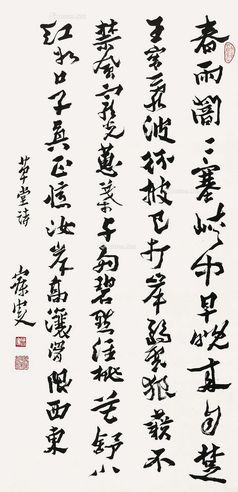 春雨闇〻塞峽中早晚来自楚
王宮亂波紛披已打岸弱雲狼藉不
禁風寵光蕙葉与多碧點注桃花舒小
紅谷口子真正憶汝岸高瀼滑限西東
草堂詩